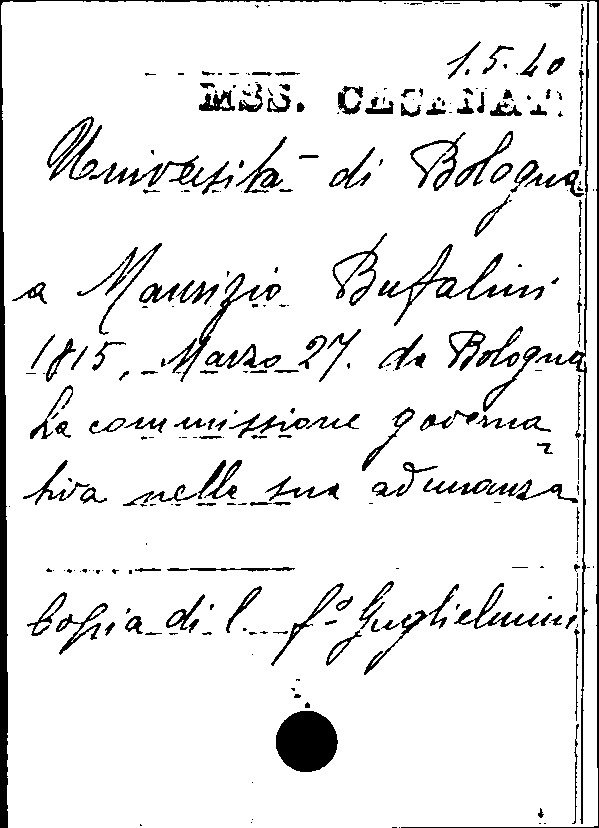 1.5.40
MSS. CESENATI
Università di Bologna
a Maurizio Bufalini
1815, Marzo 27. da Bologna
La commissione governa
tiva nelle sua adunanza
Copia di l. fº Guglielmini